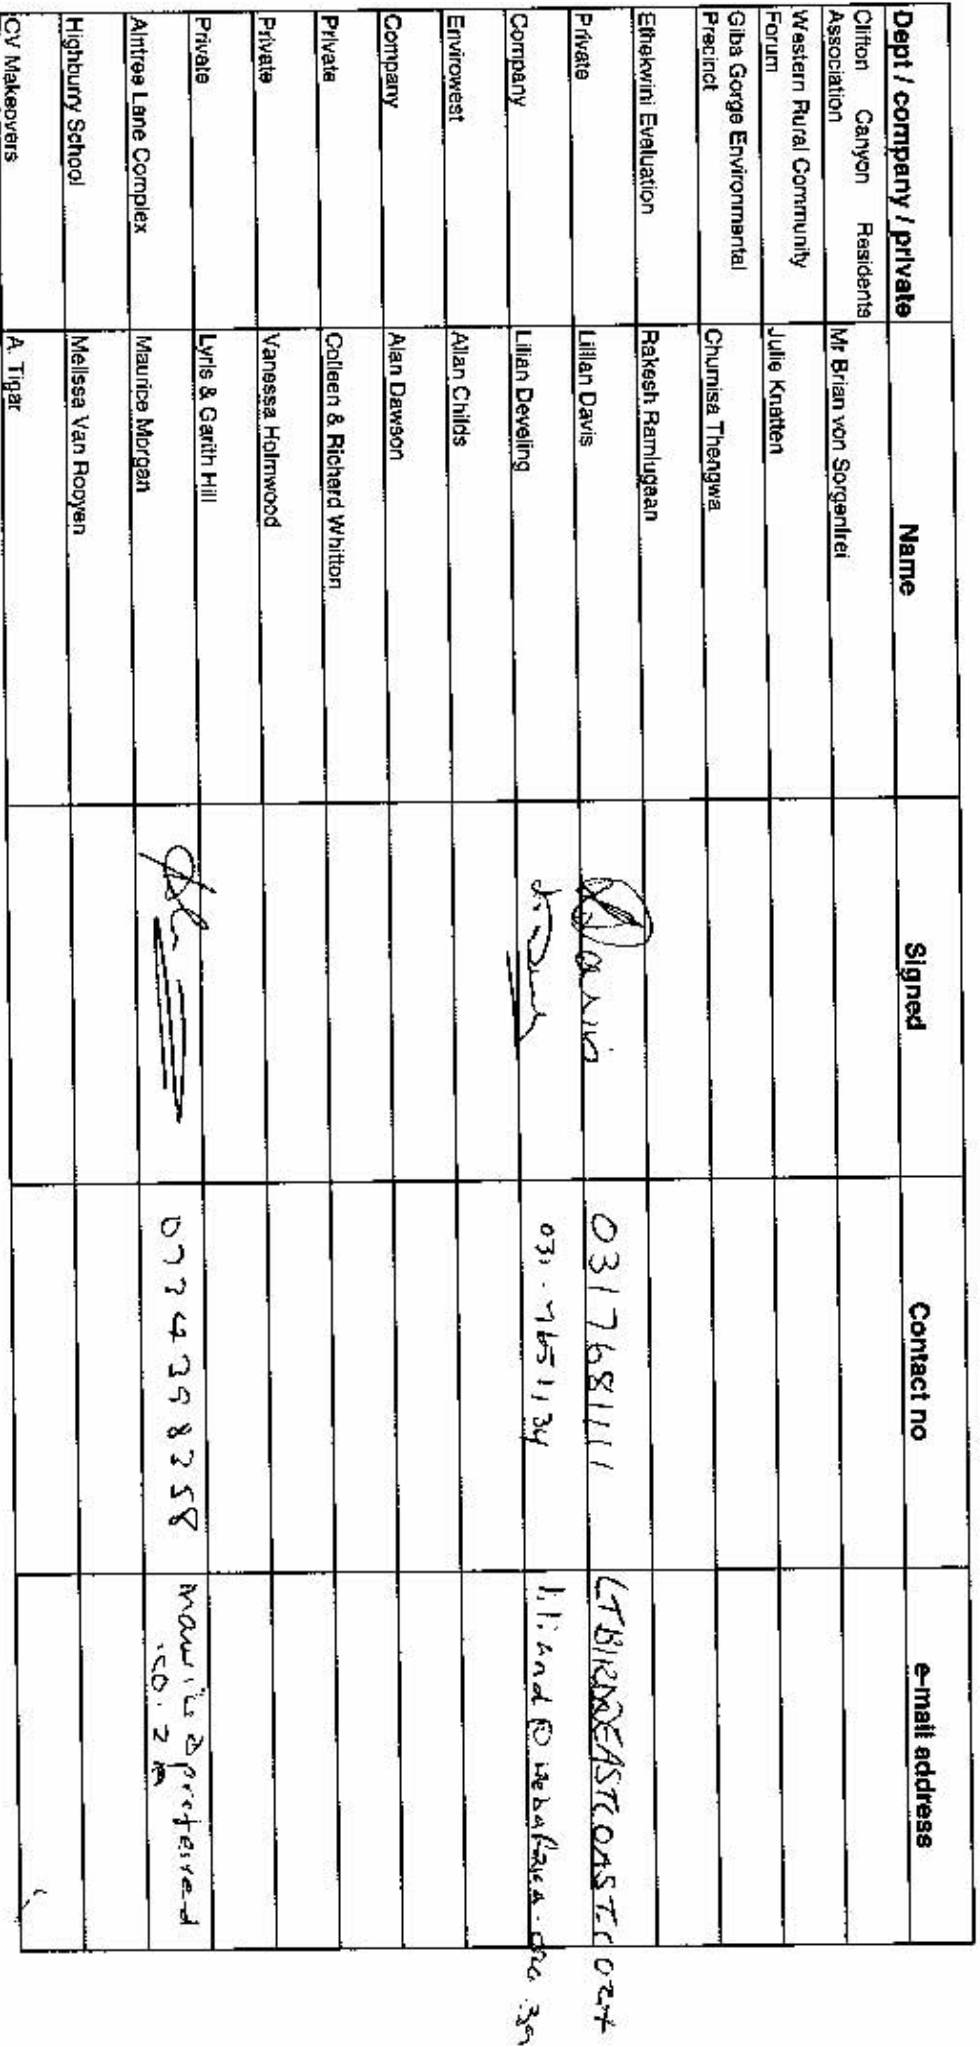 Dept / company / private Name Signed Contact no e-mail address
Clifton Canyon Residents Association Mr Brian von Sorgenfrei
Western Rural Community Forum Julie Knatten
Giba Gorge Environmental Precinct Chumisa Thengwa
Ethekwini Evaluation Rakesh Ramlugaan
Private Lillian Davis 0317681111
Company Lilian Develing 031-7651134
Envirowest Allan Childs
Company Alan Dawson
Private Colleen & Richard Whitton
Private Vanessa Holmwood
Private Lyris & Garith Hill
Aintree Lane Complex Maurice Morgan
Highbury School Melissa Van Rooyen
CV Makeovers A. Tigar